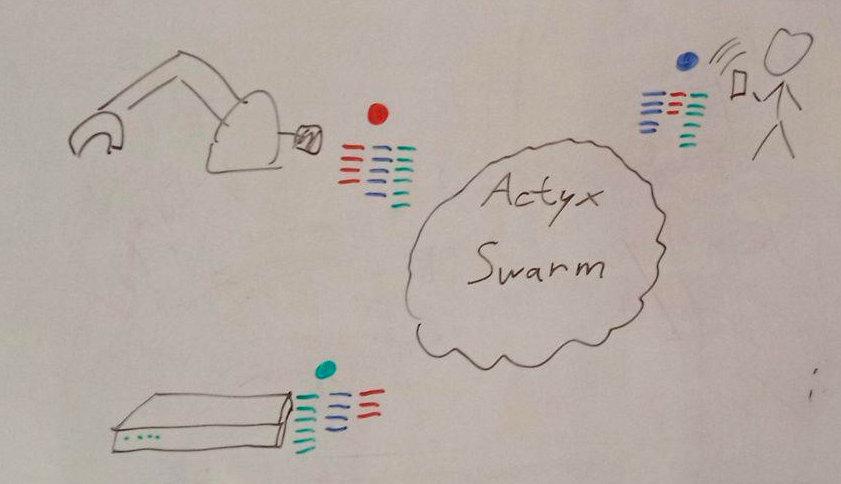 Actyx
Swarm